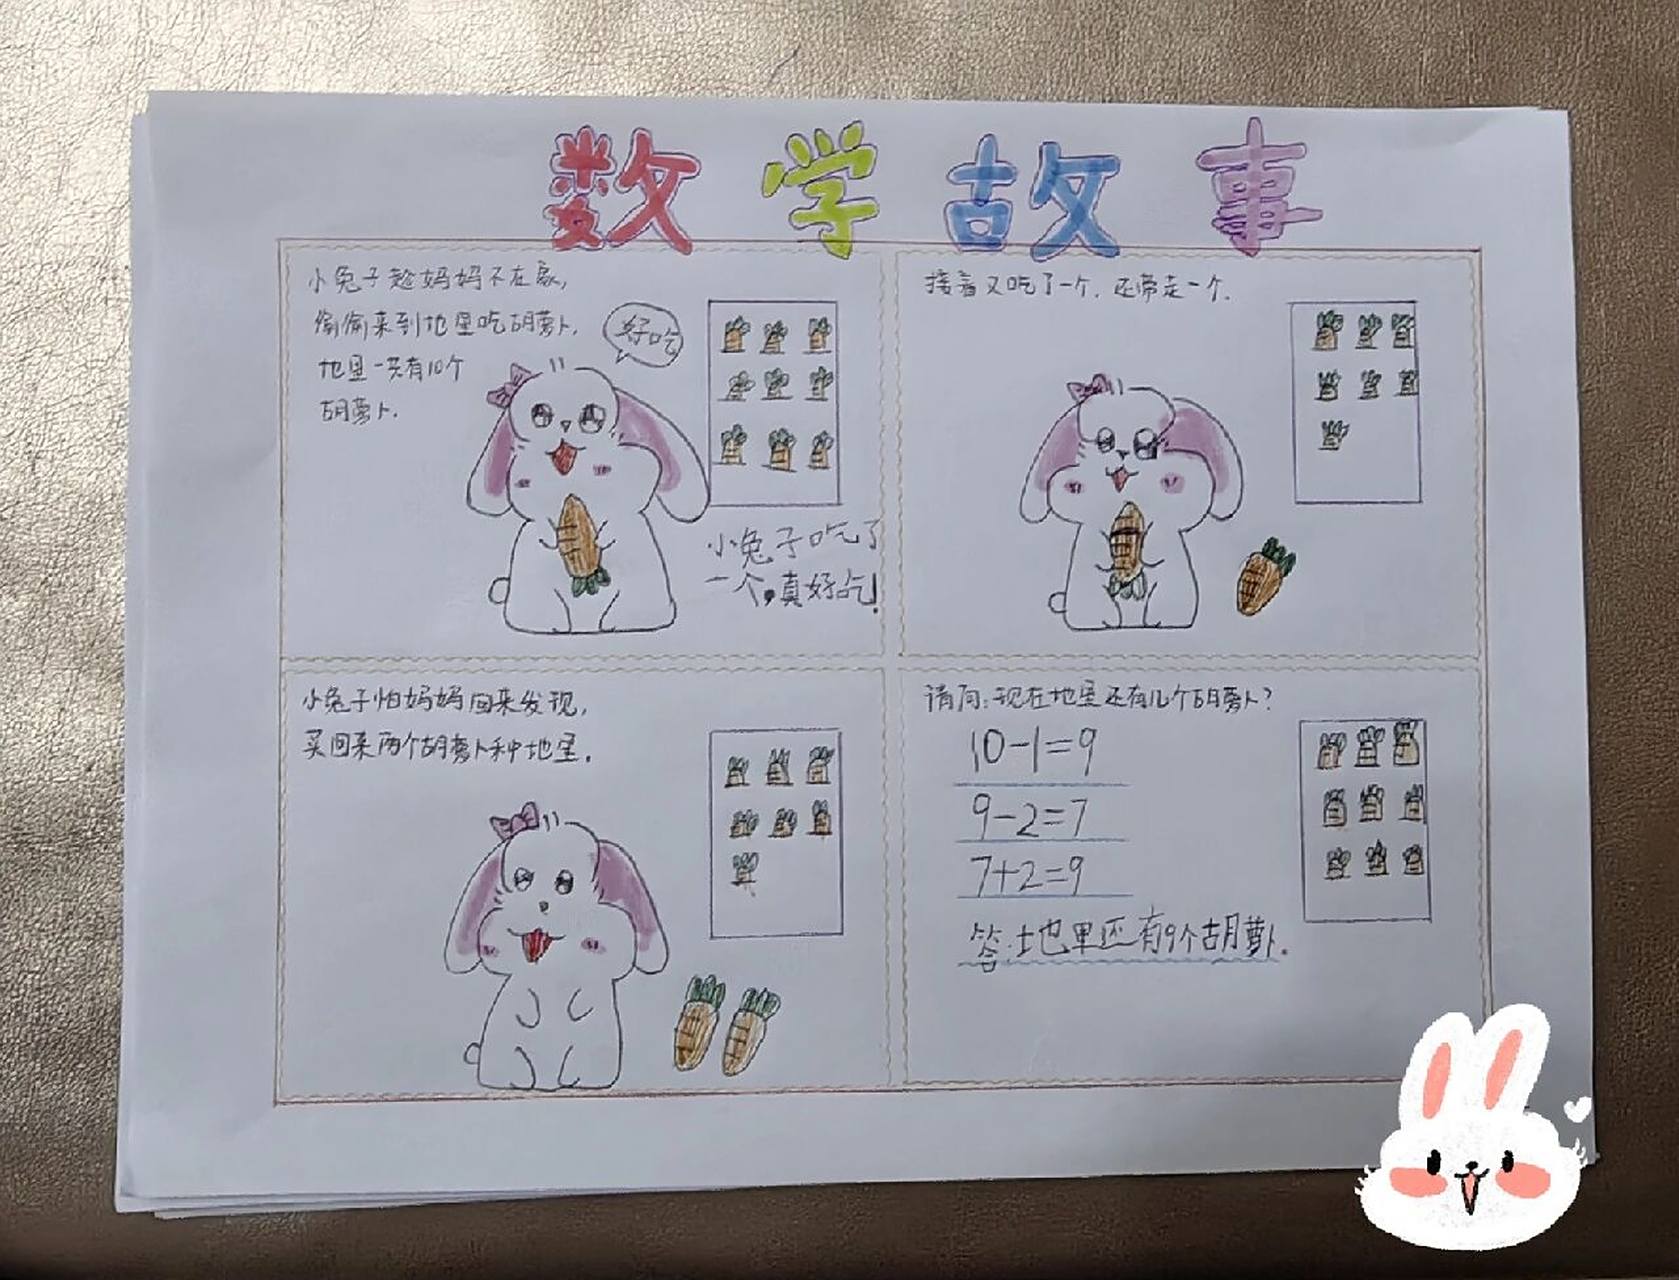 数学故事
小兔子趁妈妈不在家,
偷偷来到地里吃胡萝卜,
地里一共有10个
胡萝卜.
好吃
小兔子吃了
一个,真好吃!
接着又吃了一个,还带走一个.
小兔子怕妈妈回来发现,
买回来两个胡萝卜种地里.
请问:现在地里还有几个胡萝卜?
10-1=9
9-2=7
7+2=9
答:地里还有9个胡萝卜.